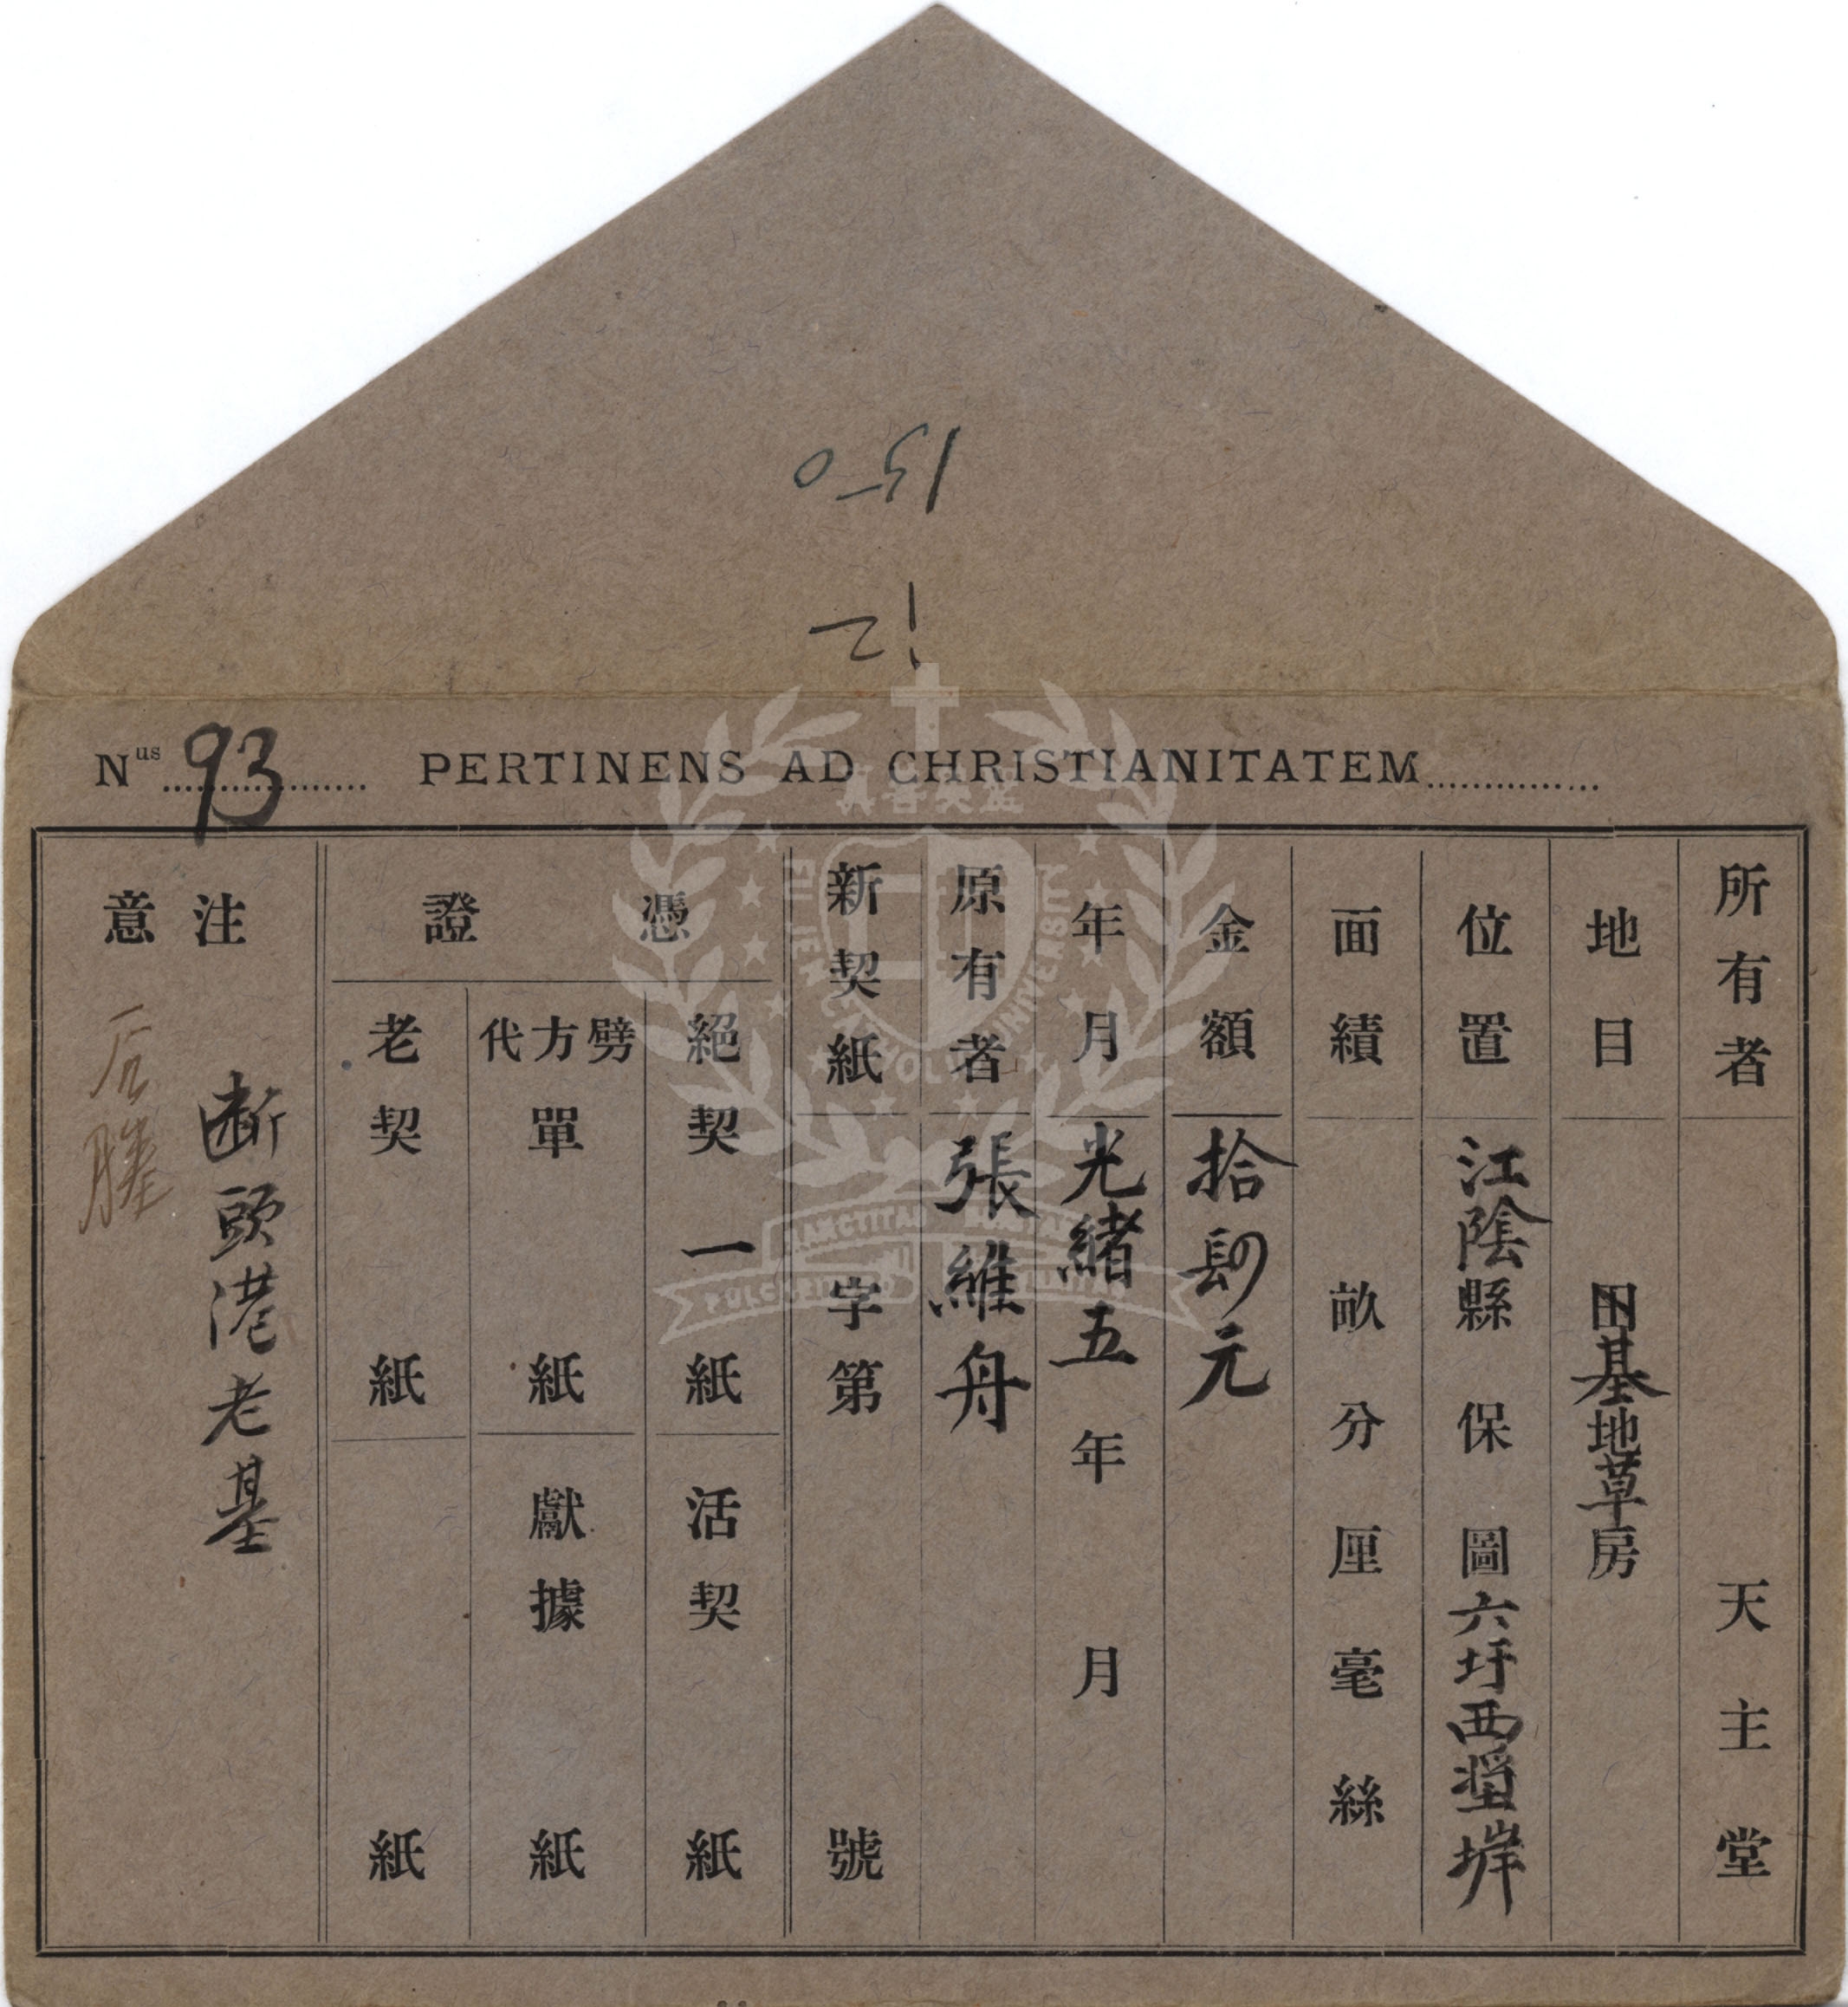 150
12
Nus 93 PERTINENS AD CHRISTIANITATEM
所有者 天主堂
地目 田基地草房
位置 江陰縣 保 圖六圩西 岸
面績 畝 分 厘 毫 絲
金額 拾四元
年月 光緒五年 月
原有者 張維舟
新契紙 字第 號
憑證
絕契 一紙 活契 紙
劈方代單 紙 獻據 紙
老契 紙 紙
注意
断頭港老基
后塍
真善美聖
FU JEN CATHOLIC UNIVERSITY